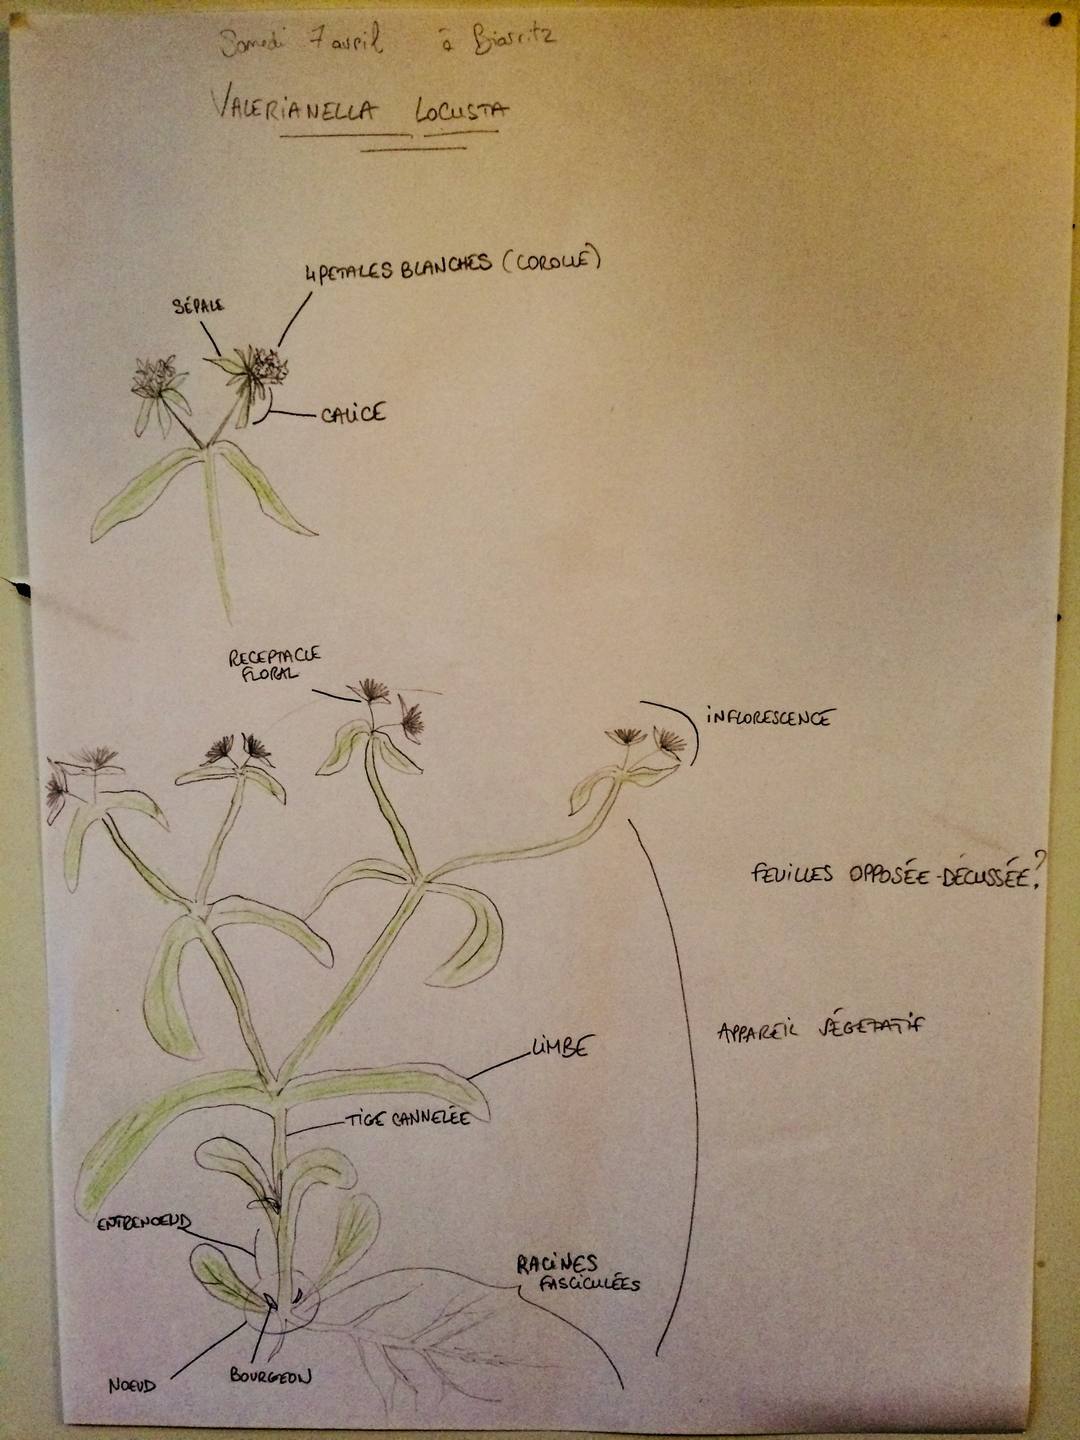 Samedi 7 avril à Biarritz
VALERIANELLA LOCUSTA
4 PETALES BLANCHES (COROLLE)
SÉPALE
CALICE
RECEPTACLE
FLORAL
INFLORESCENCE
FEUILLES OPPOSÉE-DÉCUSSÉE?
APPAREIL VÉGETATIF
LIMBE
TIGE CANNELÉE
ENTRENOEUD
RACINES
FASCICULÉES
NOEUD
BOURGEON